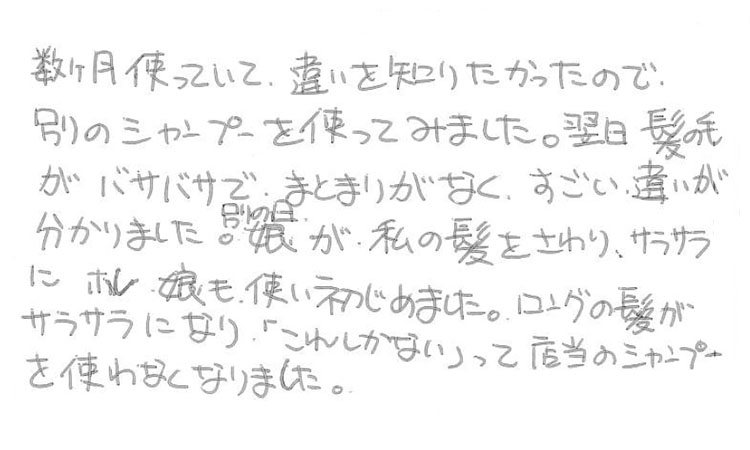 数ヶ月使っていて、違いを知りたかったので、
別のシャンプーを使ってみました。翌日髪の毛
がバサバサで、まとまりがなく、すごい違いが
分かりました。別の日娘が、私の髪をさわり、サラサラ
にホレ娘も、使い初じめました。ロングの髪が
サラサラになり、「これしかない」って店当のシャンプー
を使わなくなりました。